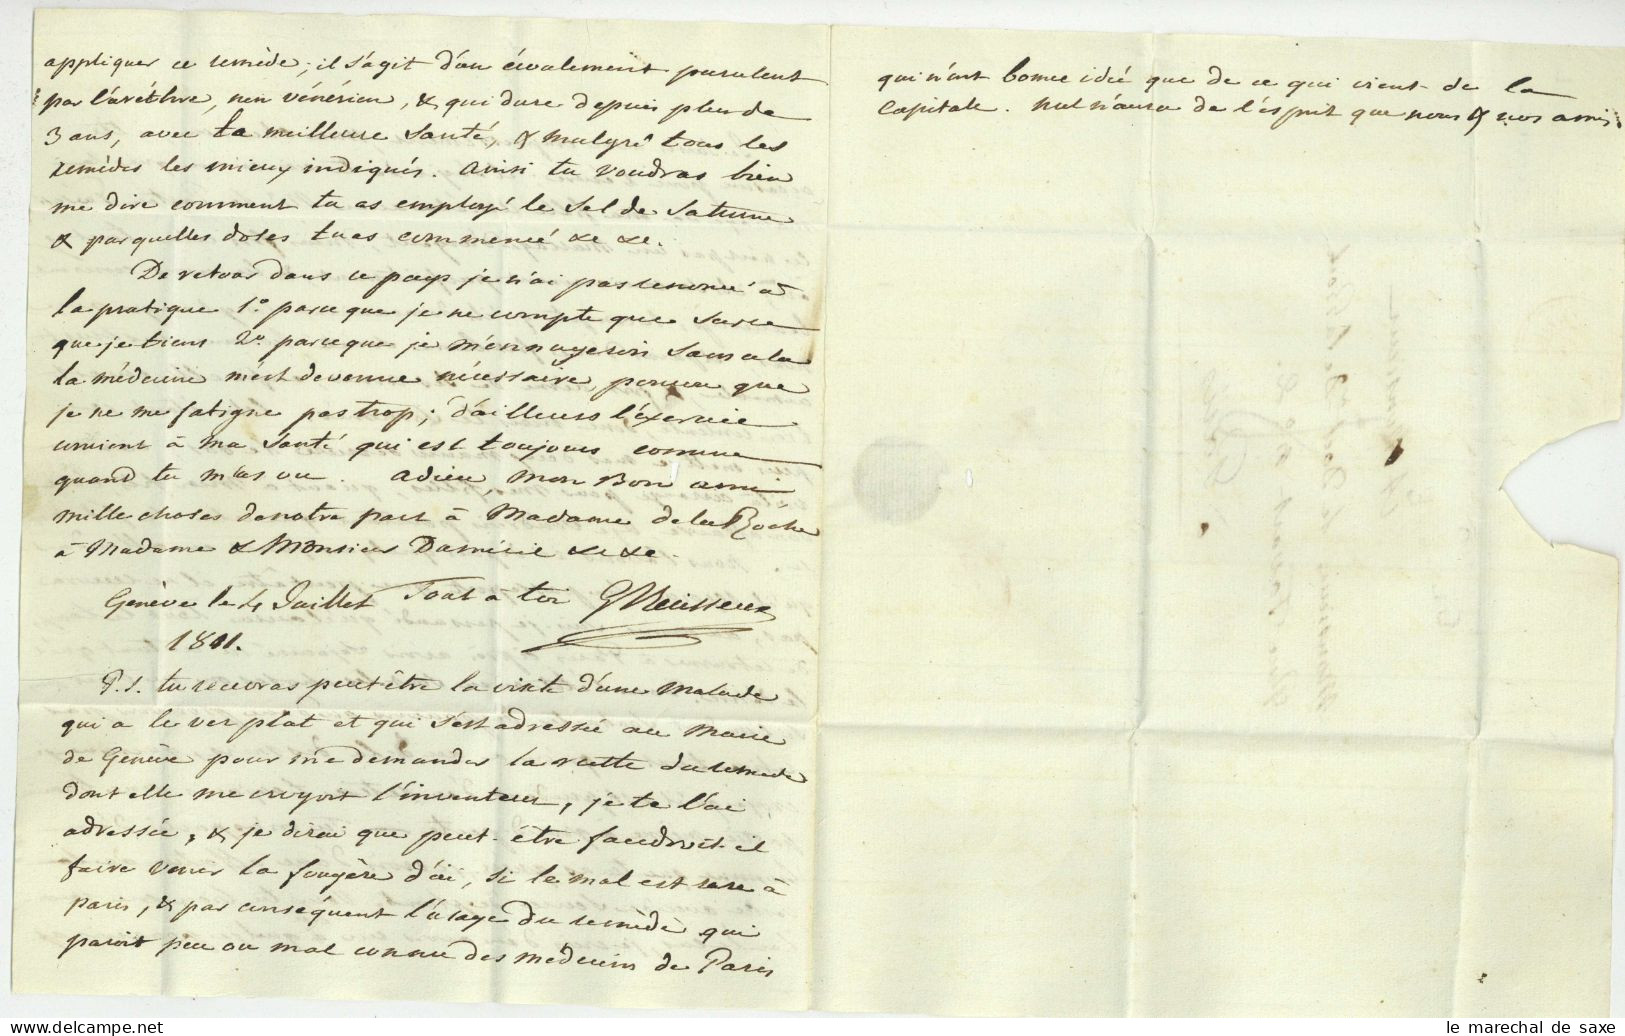 appliquer ce remède; il s'agit d'un écoulement purulent
par l'uréthre, non vénérien, & qui dure depuis plus de
3 ans, avec la meilleure santé, & malgré tous les
remèdes les mieux indiqués. ainsi tu voudras bien
me dire comment tu as employé le Sel de Saturne
& par quelles doses tu as commencé &c &c.
De retour dans ce pays je n'ai pas renoncé à
la pratique 1.° parceque je ne compte que sur ce
que je tiens 2.° parceque je m'ennuyerois sans cela
la médecine m'est devenue nécessaire, pourvu que
je ne me fatigue pas trop; d'ailleurs l'éxercice
convient à ma santé qui est toujours comme
quand tu m'as vu. adieu, mon Bon ami
mille choses de notre part à Madame de la Roche
à Madame & Monsieur &c &c.
Genève le 4 Juillet Tout à toi
1811.
P.S. tu recevras peut être la visite d'une malade
qui a le ver plat et qui s'est adressée au Maire
de Genève pour me demander la recette du remede
dont elle me croyoit l'inventeur, je te l'ai
adressée, & je dirai que peut-être faudroit-il
faire venir la fougère d'ici, si le mal est rare à
paris, & par conséquent l'usage du remède qui
paroit peu ou mal connu des médecins de Paris
qui n'ont bonne idée que de ce qui vient de la
Capitale. nul n'aura de l'ésprit que nous & nos amis.
le marechal de saxe